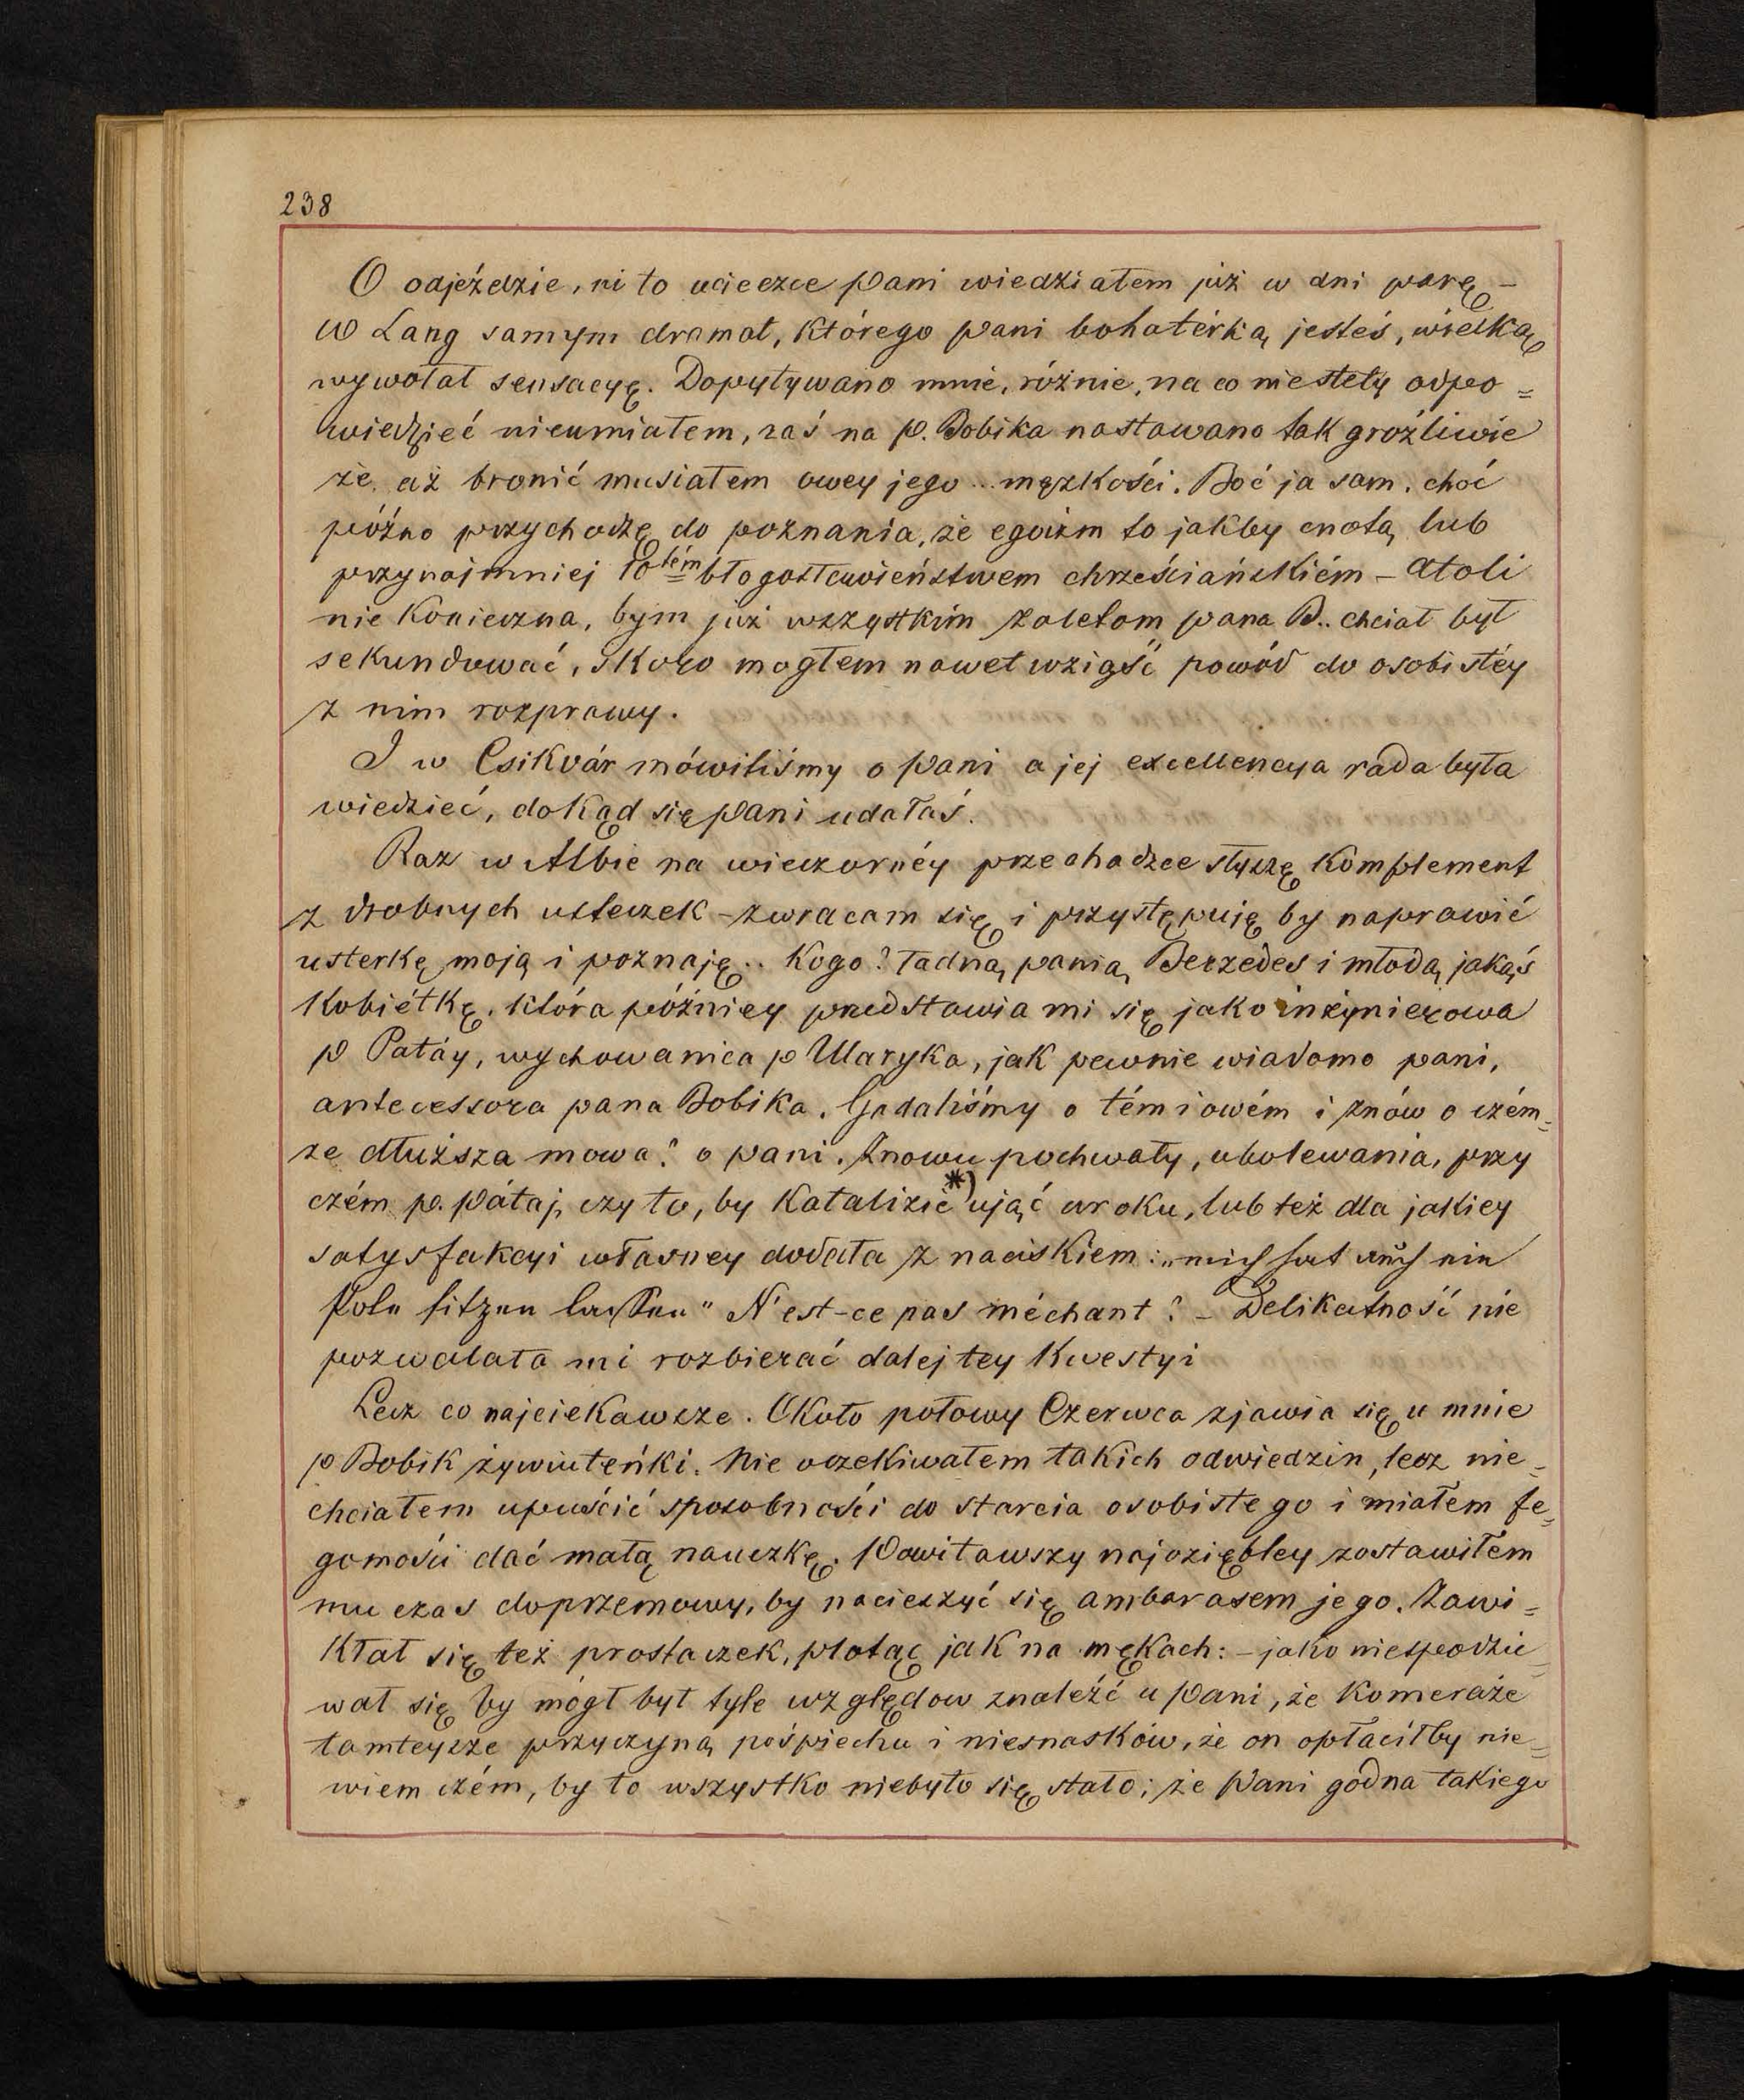 238
O odjeździe, ni to ucieczce Pani wiedziałem już w dni parę –
W Lang samym dramat, którego pani bohatérką jesteś, wielką
wywołał sensacyę. Dopytywano mnie, różnie, na co niestety odpo=
wiedzieć nieumiałem, zaś na p. Bobika nastawano tak groźliwie
że aż bronić musiałem owey jego ... męzkości. Boć ja sam, choć
późno przychodzę do poznania, że egoizm to jakby cnotą lub
przynajmniej 10tém błogosławieństwem chrześciańskiém – atoli
nie konieczna, bym już wszystkim zaletom pana B.. chciał był
sekundować, skoro mogłem nawet wziąść powód do osobistéy
z nim rozprawy.
I w Csikvár mówiliśmy o Pani a jej excellencya rada była
wiedzieć, dokąd się Pani udałaś.
Raz w Albie na wieczornéy przechadzce słyszę komplement
z drobnych usteczek – zwracam się i przystępuję by naprawić
usterkę moją i poznaję .. Kogo? ładną panią Berzedes i młodą jakąś
Kobiétkę, która późniey przedstawia mi się jako inżynierowa
P Patáy, wychowanica p Ularyka, jak pewnie wiadomo pani,
antecessora pana Bobika. Gadaliśmy o tém i owém i znów o czém=
że dłuższa mowa? o pani. Znowu pochwały, ubolewania, przy
czém p. Pátaj, czy to, by Katalizie *) ująć uroku, lub też dla jakiey
satysfakcyi własney dodała z naciskiem: „mich hat auch ein
Pole sitzen lassen" N'est-ce pas méchant? – Delikatność nie
pozwalała mi rozbierać dalej tey kwestyi
Lecz co najciekawsze. Około połowy Czerwca zjawia się u mnie
p Bobik żywiuteńki. Nie oczekiwałem takich odwiedzin, lecz nie=
chciałem upuścić sposobności do starcia osobistego i miałem je=
gomości dać małą nauczkę. Powitawszy najoziębley zostawiłem
mu czas do przemowy, by nacieszyć się ambarasem jego. Zawi=
kłał się też prostaczek, plotąc jak na mękach: – jako niespodzie=
wał się by mógł był tyle względow znaleźć u Pani, że Komeraże
tamteysze przyczyną pośpiechu i niesnasków, że on opłaciłby nie=
wiem czém, by to wszystko niebyło się stało; że Pani godna takiego